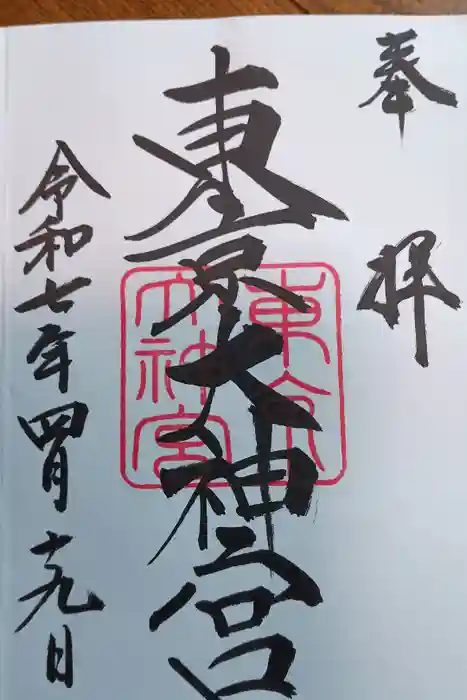 奉拝
東京大神宮
東京
大神宮
令和七年四月十九日